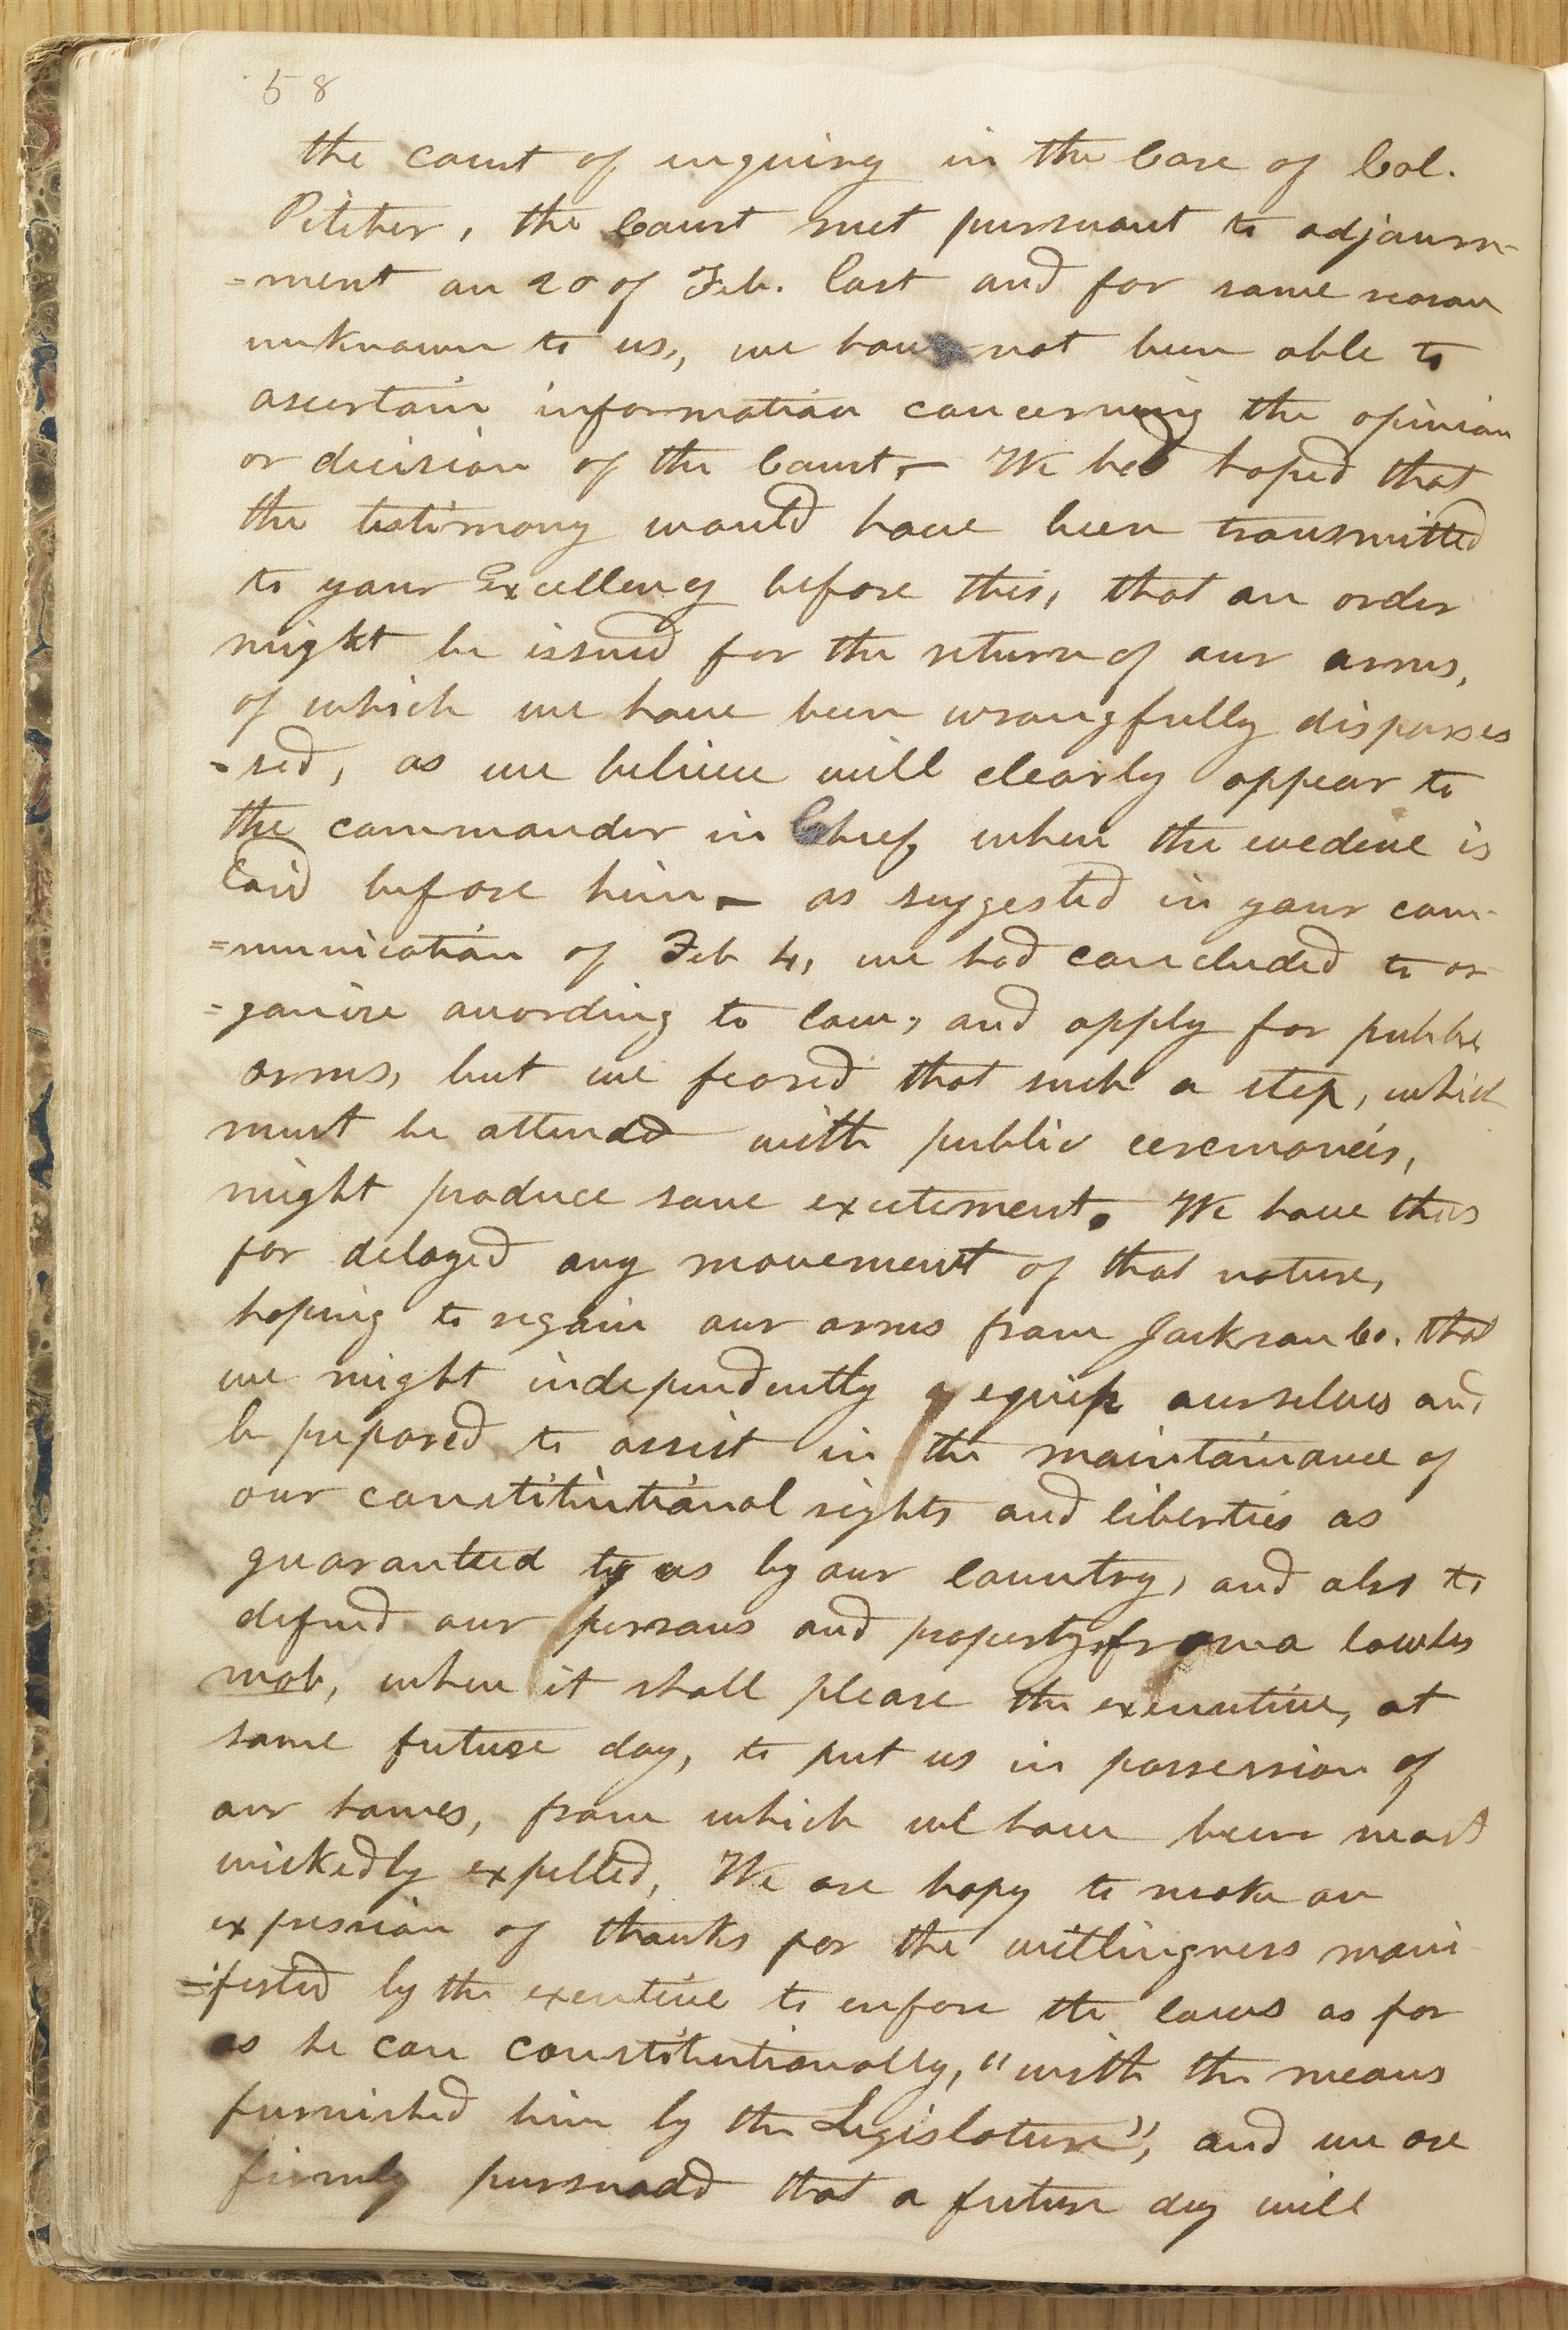 58
the court of inquiry in the Case of Col.
Pitcher, the Court met pursuant to adjourn-
=ment on 20 of Feb. last and for some reason
unknown to us, we have not been able to
ascertain information concerning the opinion
or decision of the Court,— We hed hoped that
the testimony would have been transmitted
to your Excellency before this, that an order
might be issued for the return of our arms,
of which we have been wrongfully disposses
-sed, as we believe will clearly appear to
the commander in Chief, when the evedence is
laid before him— as suggested in your com-
=munication of Feb 4, we had concluded to or
=ganise according to law, and apply for public
arms, but we feared that such a step, which
must be attended with public ceremonies,
might produce some excitement. We have thus
far delayed any movement of that nature,
hoping to regain our arms from Jackson Co. that
we might independently equip ourselves and
be prepared to assist in the maintainance of
our constitutional rights and liberties as
guaranteed to us by our country, and also to
defend our persons and property from a lawles
mob, when it shall please the executive, at
some future day, to put us in possession of
our homes, from which we have been most
wickedly expelled, We are hapy to make an
expression of thanks for the willingness mani
=fested by the executive to enforce the laws as far
as he can constitutionally, "with the means
furnished him by the Legislature", and we are
firmly pursuaded that a future day will